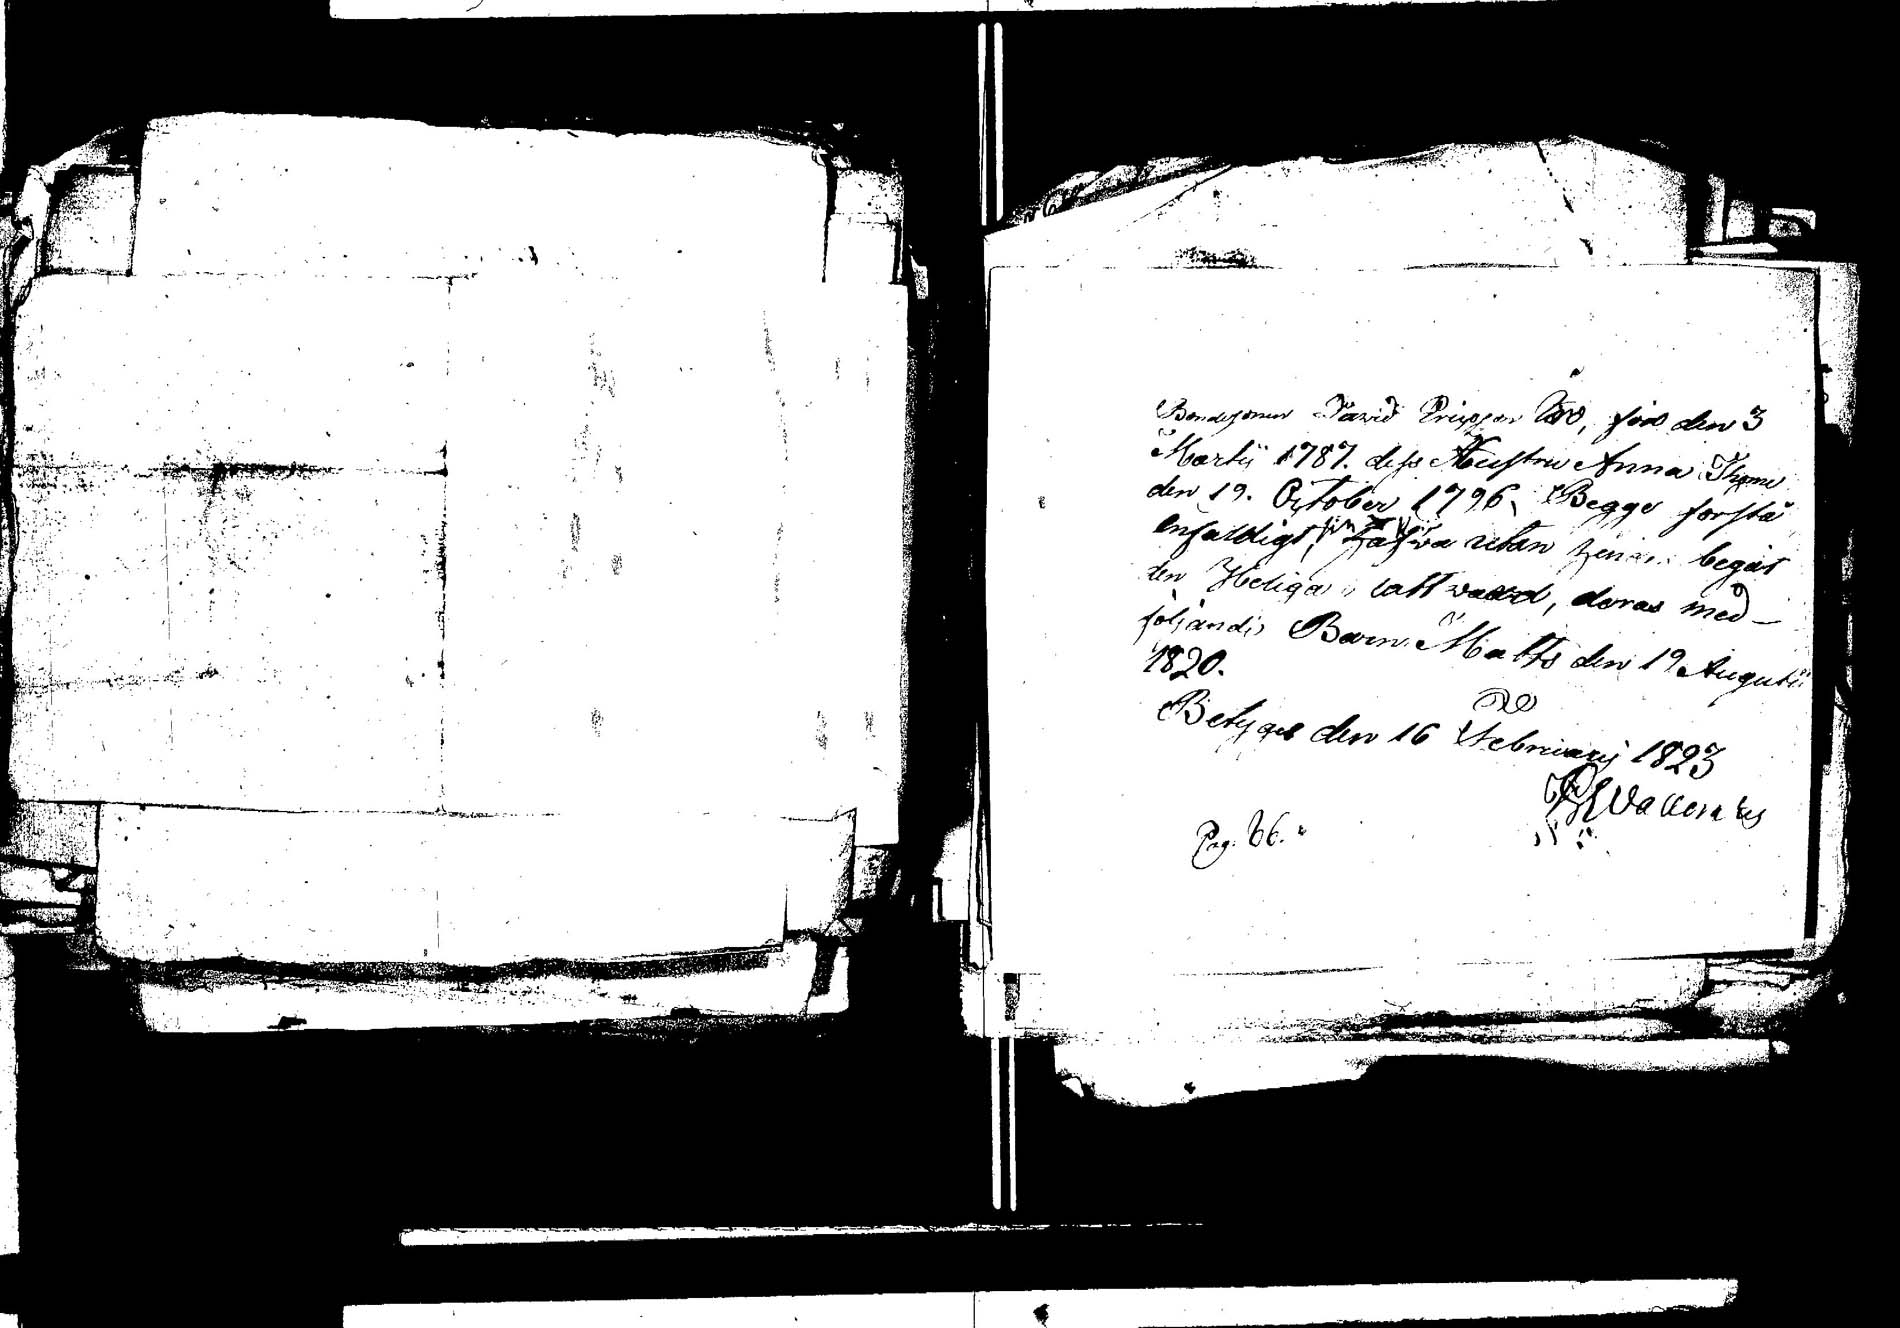 Bondesonen David Ericsson, född den 3
Martii 1787. dess Hustru Anna Thoms
den 19. October 1796, Begge förstå
enfaldigt, utan begåt
den Heliga Nattvard, deras med-
följande Barn Matts den 19 Augusti
1820.
Betygas den 16 Februarij 1823
Pag. 66.